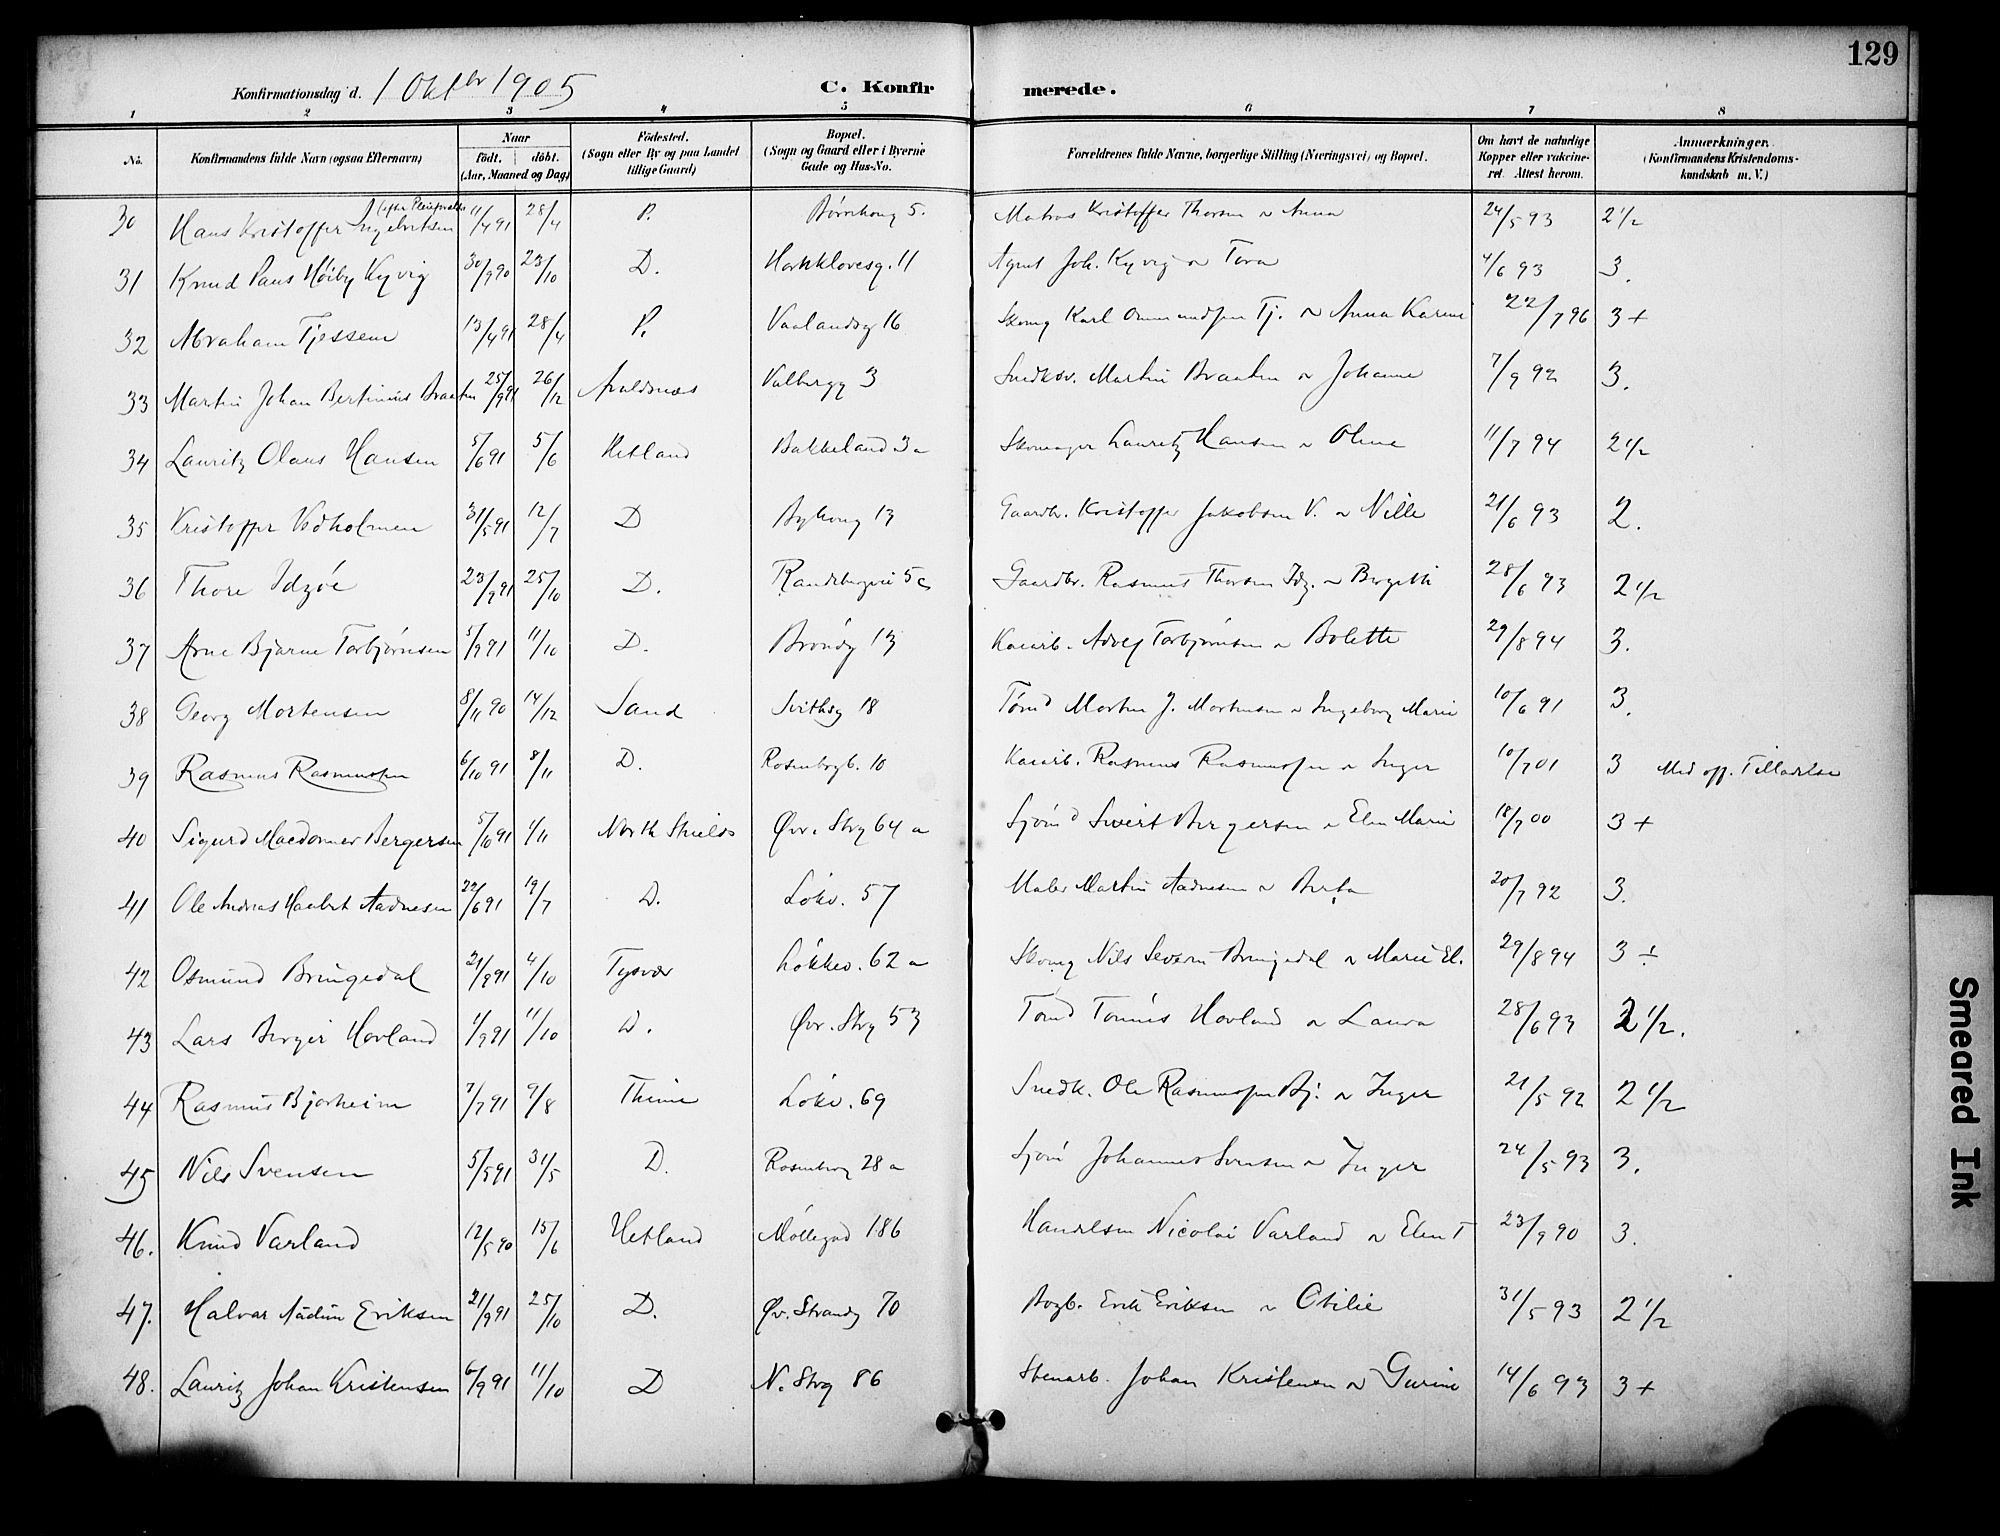 129
Konfirmationsdag d. 1 Oktbr 1905 C. Konfirmerede.
1 2 3 4 5 6 7 8
No. Konfirmandens fulde Navn (ogsaa Efternavn) Naar födt. döbt. (Aar, Maaned og Dag) Födested. (Sogn eller By og paa Landet tillige Gaard) Bopæl. (Sogn og Gaard eller i Byerne Gade og Hus-No. Forældrenes fulde Navne, borgerlige Stilling (Næringsvei) og Bopæl. Om havt de naturlige Kopper eller vakcineret. Attest herom. Anmærkninger. (Konfirmandens Kristendomskundskab m. V.)
30 Hans Kristoffer Ingebretsen 11/4 91 28/4 P. Börnhaug 5. Matros Kristoffer Thorsen ~ Anna 24/5 93 2 1/2
31 Knud Paus Höiby Kyvig 30/9 90 23/10 D. Harkklovesg. 11 Agent Joh. Kyvig ~ Tora 4/6 93 3.
32 Abraham Tjessem 13/4 91 28/4 P. Vaalandsg 16 Skomg Karl Ommundsen Tj. ~ Anna Karine 22/7 96 3 +
33 Martin Johan Bertinius Braaten 25/9 91 26/12 Avaldsnæs Valbergg 3 Snedksv. Martin Braaten ~ Johanne 7/9 92 3.
34 Lauritz Olaus Hansen 5/6 91 5/6 Hetland Bakkeland 3 a Skomager Lauritz Hansen ~ Oline 11/7 94 2 1/2
35 Kristoffer Vedholmen 31/5 91 12/7 D Byhaug 13 Gaardbr. Kristoffer Jakobsen V. ~ Nille 21/6 93 2.
36 Thore Idzöe 23/9 91 25/10 D. Randebergvei 5 c Gaardbr. Rasmus Thorsen Idz. ~ Bergithe 28/6 93 2 1/2
37 Arne Bjarne Torbjörnsen 5/9 91 11/10 D. Bröndg 13 Kaiarb. Adolf Torbjörnsen ~ Bolette 29/8 94 3.
38 Georg Mortensen 8/11 90 14/12 Sand Svithsg 18 Tömd Morten J. Mortensen ~ Ingeborg Marie 10/6 91 3.
39 Rasmus Rasmussen 6/10 91 8/11 D. Rosenbergb. 10 Kaiarb. Rasmus Rasmussen ~ Inger 10/7 01 3 Med opf. Tilladelse
40 Sigurd Macdonner Bergersen 5/10 91 1/11 North Shields Øvr. Strg 64 a Sjömd Sivert Bergersen ~ Elen Marie 18/7 00 3 +
41 Ole Andreas Haabet Aadnesen 22/6 91 19/7 D. Lökv. 57 Maler Martin Aadnesen ~ Berta 20/7 92 3.
42 Osmund Bringedal 21/9 91 4/10 Tysvær Lökkev. 62 a Skomg Nils Severin Bringedal ~ Marie El. 29/8 94 3 ÷
43 Lars Berger Hovland 1/9 91 11/10 D. Øvr. Strg 53 Tömd Tönnis Hovland ~ Laura 28/6 93 2 1/2.
44 Rasmus Bjorheim 7/7 91 9/8 Thime Lökv. 69 Snedk. Ole Rasmussen Bj. ~ Inger 21/5 92 2 1/2
45 Nils Svensen 5/5 91 31/5 D. Rosenberg 28 a Sjöm Johannes Svensen ~ Inger 24/5 93 3.
46. Knud Varland 12/5 90 15/6 Hetland Möllegad 186 Handelsm Nicolai Varland ~ Elen T 23/9 90 3.
47. Halvar Aadun Eriksen 21/9 91 25/10 D. Øv. Strandg 70 Bogb. Erik Eriksen ~ Otilie 31/5 93 2 1/2
48. Lauritz Johan Kristensen 6/9 91 11/10 D N. Strg 86 Stenarb. Johan Kristensen ~ Gurine 14/6 93 3 +
Smeared Ink